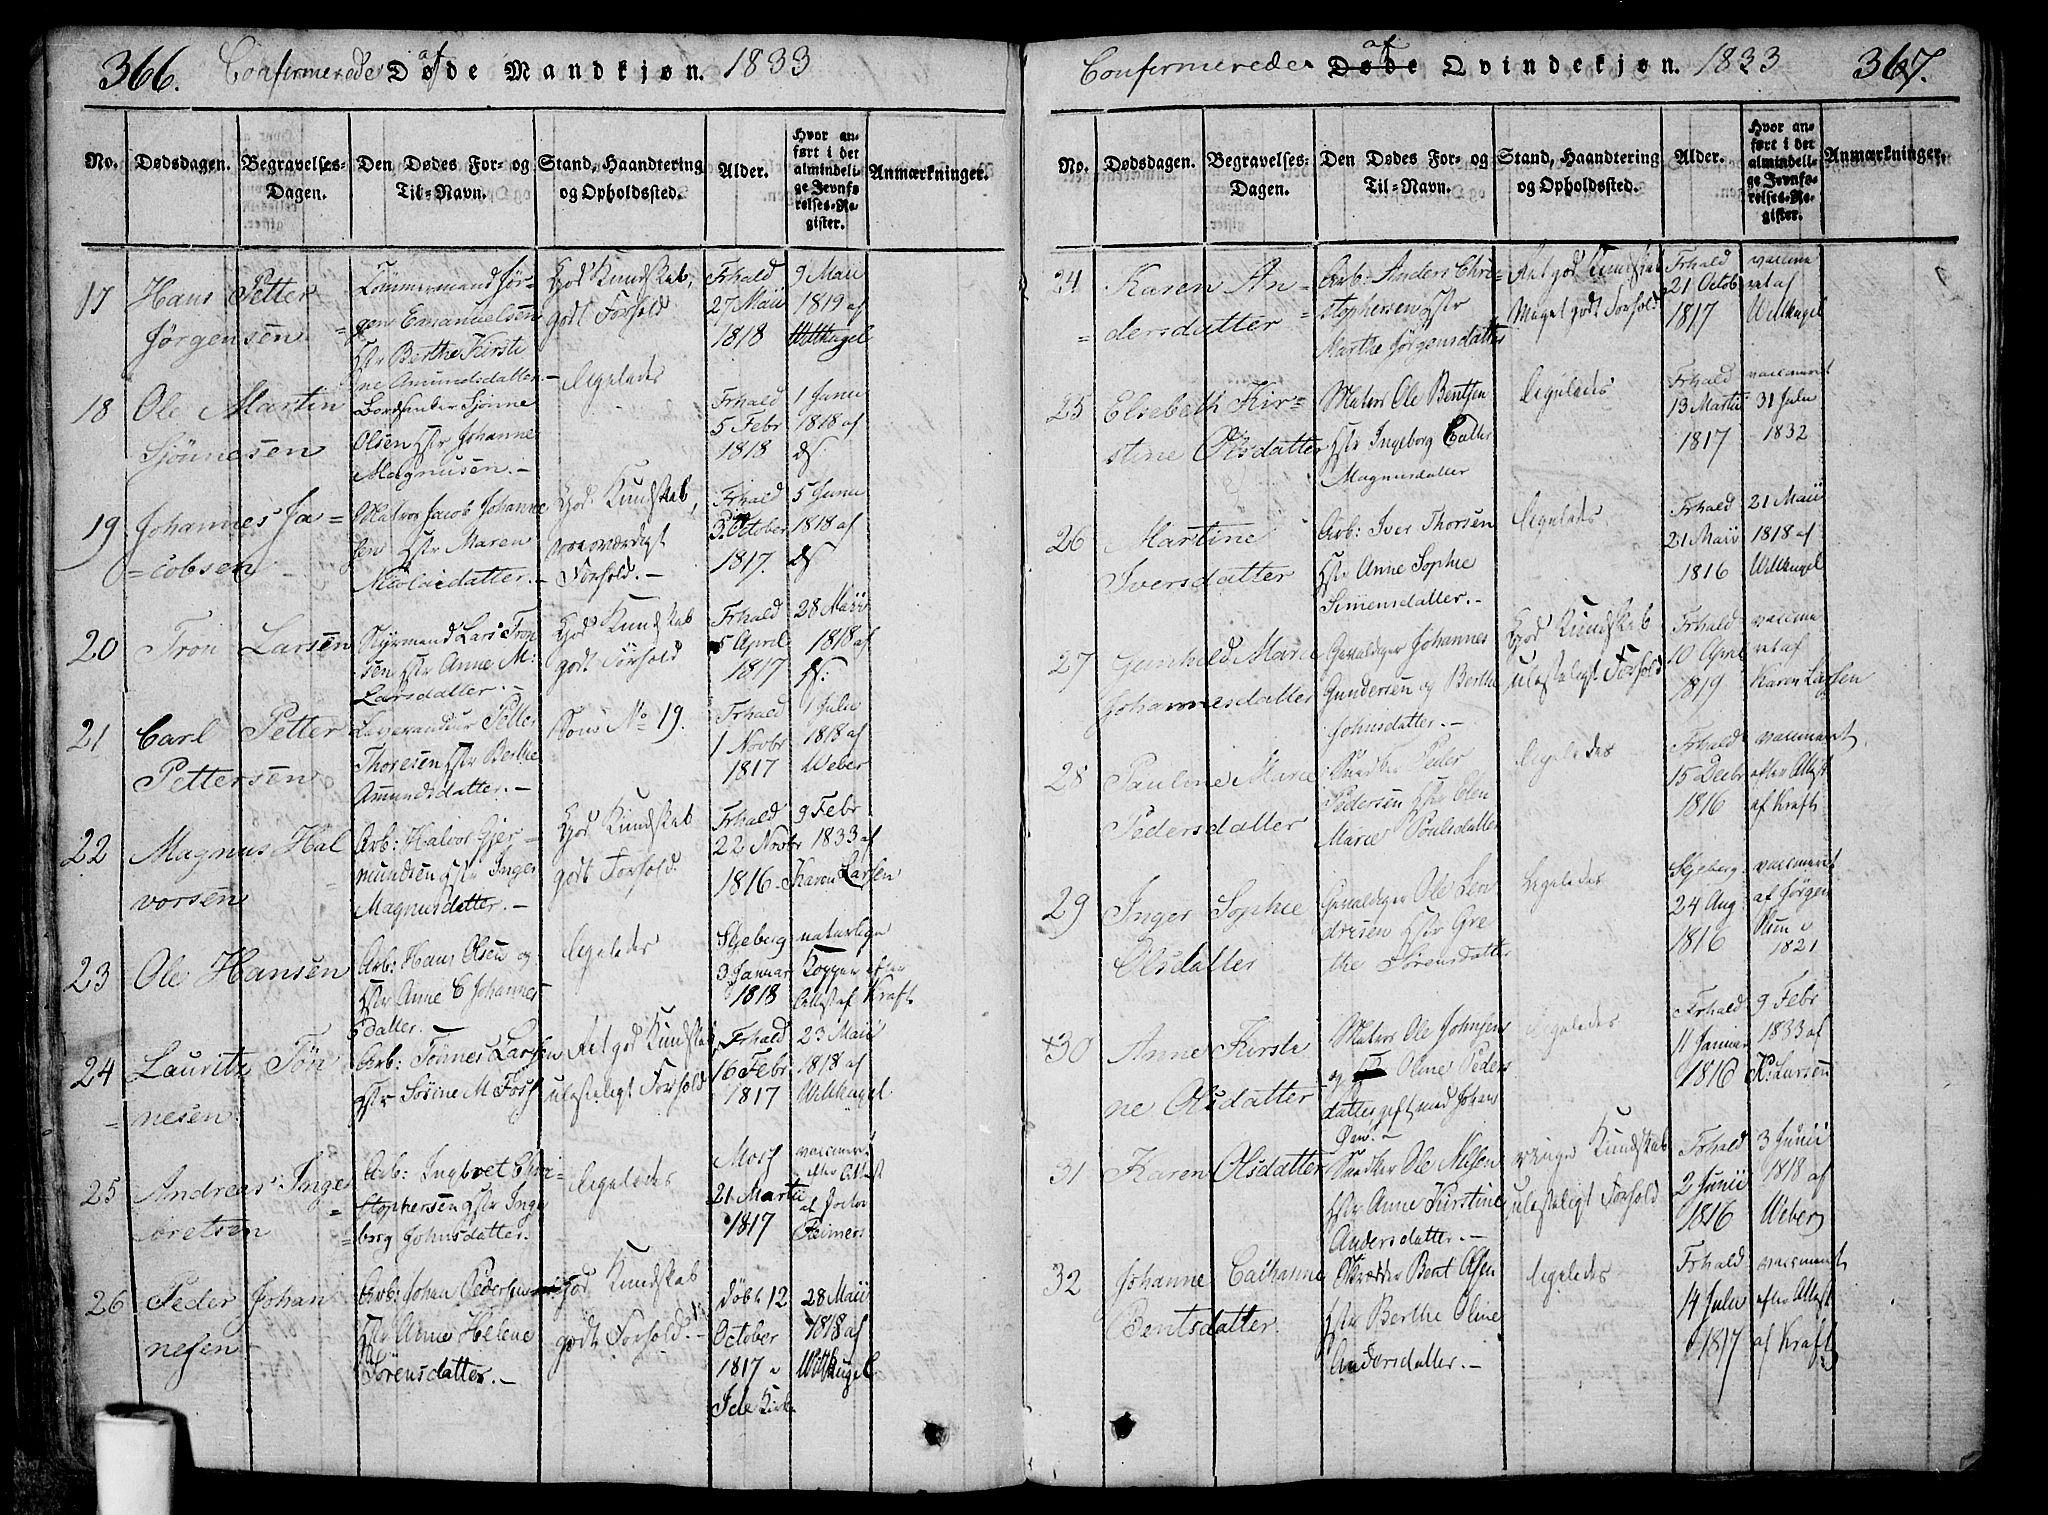 366. Confermerede af Døde Mandkjøn. 1833
No. Dødsdagen. Begravelses-Dagen. Den Dødes For- og Til-Navn. Stand, Haandtering og Opholdssted. Alder. Hvor anført i det almindelige Jevnførelses-Register. Anmærkninger.
17 Hans Petter Jørgensen
Tømmermand Jørgen Emanuelsen Hstr Berthe Kirstine Amundsdatter.
God Kundskab, godt Forhold
Frhald 27 Maii 1818
9 Maii 1819 af Willkugel
18 Ole Martin Sjönnesen
Sjönne Olsen Hstr Johanne Magnusen.
ligeledes
Frhald 5 Febr 1818
1 Junii 1818 af ds.
19 Johannes Jacobsen
Matros Jacob Johannesen Hstr Maren Nicolaidatter.
God Kundskab, roesværdigt Forhold.
Frhald October 1817.
5 Junii 1818 af ds
20 Tron Larsen
Styrmand Lars Tronsen Hstr Anne M: Larsdatter.
God Kundskab godt Forhold
Frhald 5 April 1817
28 Maii 1818 af ds:
21 Carl Petter Pettersen
Petter Thoresen Hstr Berthe Amundsdatter.
Som No 19.
Frhald 1 Novbr 1817
1 Julii 1818 af Weber
22 Magnus Halvorsen
Arb: Halvor Gjermundsen Hstr Inger Magnusdatter.
God Kundskab godt Forhold.
Frhald 22 Novbr 1816
9 Febr 1833 af Karen Larsen
23 Ole Hansen
Arb: Hans Olsen og Hstr Anne C Johannesdatter.
ligeledes
Skjeberg 3 Januar 1818
naturlige Kopper efter Attest af Kraft
24 Lauritz Tönnesen
Arb: Tönnes Larsen Hstr Sörine M
Ret god Kundskab ulasteligt Forhold
Frhald 16 Febr 1817
23 Maii 1818 af Willkugel
25 Andreas Ingebretsen
Arb: Ingbret Christophersen Hstr Ingeborg Johnsdatter.
ligeledes
Moss 21 Martii 1817
vaccineret efter Attest af Doctor Reimers
26 Peder Johannesen
Arb: Johan Pedersen Hstr Anne Helene Sörensdatter.
God Kundskab godt Forhold.
döbt 12 October 1817 i Ide Kirke
28 Maii 1818 af Willkugel
Confermerede af Døde Qvindekjøn. 1833 367.
No. Dødsdagen. Begravelses-Dagen. Den Dødes For- og Til-Navn. Stand, Haandtering og Opholdssted. Alder. Hvor anført i det almindelige Jevnførelses-Register. Anmærkninger.
24 Karen Andersdatter
Arb: Anders Christophersen Hstr Marthe Jörgensdatter
Ret god Kundskab Meget godt Forhold
Frhald 21 Octob 1817
vaccineret af Willkugel
25 Elsebeth Kirstine Olsdatter
Matros Ole Bentsen Hstr Ingeborg Magnusdatter
ligeledes
Frhald 13 Martii 1817
vaccineret 31 Julii 1832
26 Martine Iversdatter
Arb: Iver Thorsen Hstr Anne Sophie Simensdatter.
ligeledes
Frhald 21 Maii 1816
21 Maii 1818 af Willkugel
27 Gunhild Marie Johannesdatter
Gevaldiger Johannes Gundersen og Berthe Johnsdatter.
God Kundskab ulasteligt Forhold
Frhald 10 April 1819
vaccineret af Karen Larsen
28 Pauline Marie Pedersdatter
Snedker Peder Pedersen Hstr Elen Marie Poulsdatter
ligeledes
Frhald 15 Decbr 1816
vaccineret efter Attest af Kraft
29 Inger Sophie Olsdatter
Gevaldiger Ole Hstr Grethe Sörensdatter
ligeledes
Skjeberg 24 Aug: 1816
vaccineret af Jörgen i 1821
+30 Anne Kirstine Olsdatter
Matros Ole Johnsen og Oline Pedersdatter gift med Johan
ligeledes
Frhald 11 Januar 1816
9 Febr 1833 af K: Larsen
31 Karen Olsdatter
Snedker Ole Nilsen Hstr Anne Kirstine Andersdatter.
Kundskab ulasteligt Forhold
Frhald 2 Junii 1816
3 Junii 1818 af Weber
32 Johanne Cathrine Bentsdatter.
Skrædder Bent Olsen Hstr Berthe Oline Andersdatter.
ligeledes
Frhald 14 Julii 1817
vaccineret efter Attest af Kraft